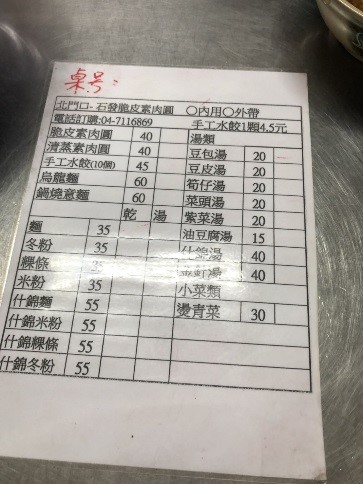 桌号:
北門口-石發脆皮素肉圓 〇內用〇外帶
電話訂購:04-7116869 手工水餃1顆4.5元
脆皮素肉圓 40 湯類
清蒸素肉圓 40 豆包湯 20
手工水餃(10個) 45 豆皮湯 20
烏龍麵 60 筍仔湯 20
鍋燒意麵 60 菜頭湯 20
乾 湯 紫菜湯 20
麵 35 油豆腐湯 15
冬粉 35 什錦湯 40
粿條 湯 40
米粉 35 小菜類
什錦麵 55 燙青菜 30
什錦米粉 55
什錦粿條 55
什錦冬粉 55